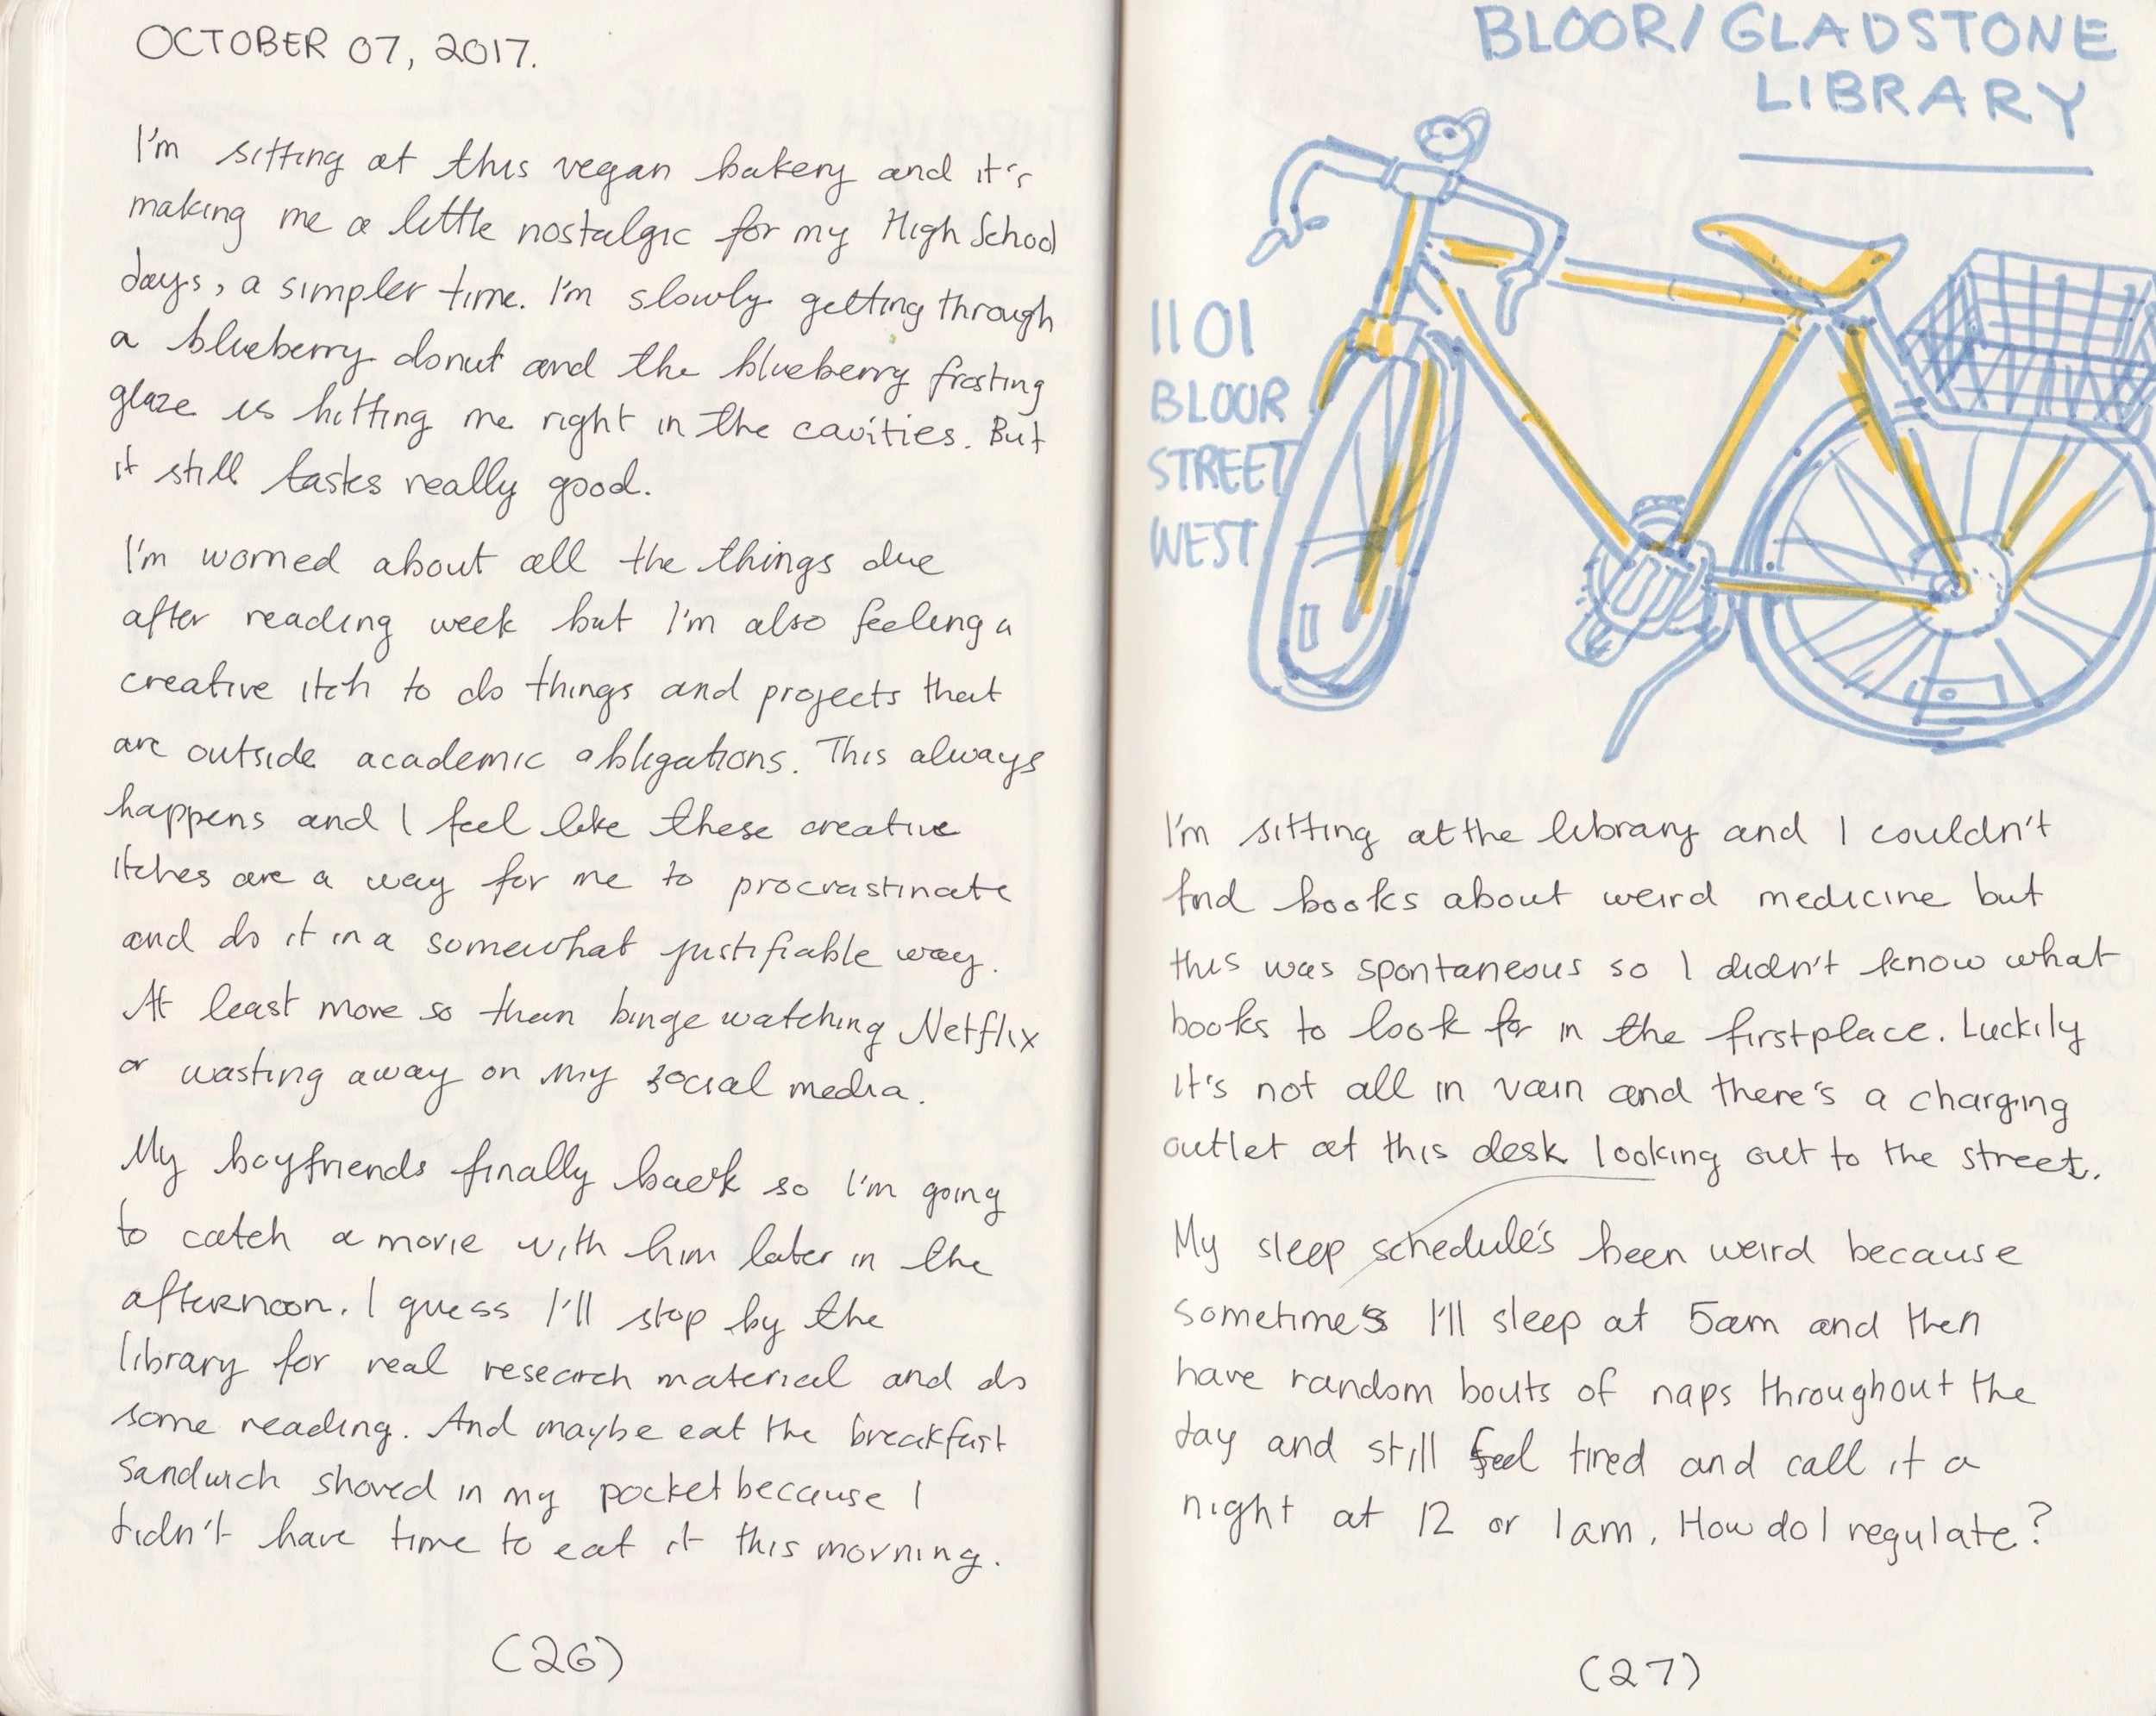 OCTOBER 07, 2017.
I'm sitting at this vegan bakery and it's
making me a little nostalgic for my High School
days, a simpler time. I'm slowly getting through
a blueberry donut and the blueberry frosting
glaze is hitting me right in the cavities. But
it still tastes really good.
I'm worried about all the things due
after reading week but I'm also feeling a
creative itch to do things and projects that
are outside academic obligations. This always
happens and I feel like these creative
itches are a way for me to procrastinate
and do it in a somewhat justifiable way.
At least more so than binge watching Netflix
or wasting away on my social media.
My boyfriends finally back so I'm going
to catch a movie with him later in the
afternoon. I guess I'll stop by the
library for real research material and do
some reading. And maybe eat the breakfast
sandwich shoved in my pocket because I
didn't have time to eat it this morning.
(26)
BLOOR/GLADSTONE
LIBRARY
1101
BLOOR
STREET
WEST
I'm sitting at the library and I couldn't
find books about weird medicine but
this was spontaneous so I didn't know what
books to look for in the first place. Luckily
it's not all in vain and there's a charging
outlet at this desk looking out to the street.
My sleep schedule's been weird because
sometimes I'll sleep at 5am and then
have random bouts of naps throughout the
day and still feel tired and call it a
night at 12 or 1am. How do I regulate?
(27)